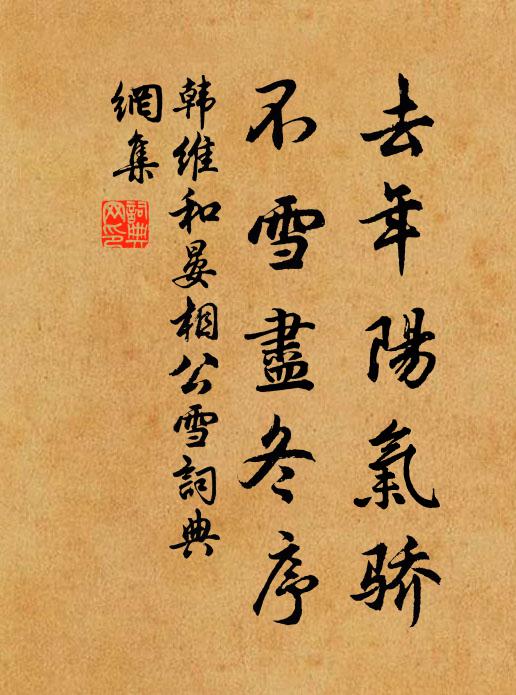 去年陽氣骄
不雪盡冬序
韩維和晏相公雪詞典
網集
詞典网印